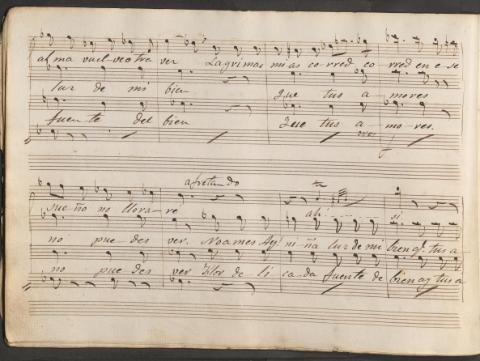 alma vuelve otra ver Lagrimas mias corred corred en e se
luz de mi bien Que tus amores
fuente del bien Que tus a-mo-res.
apretando
sueño ni llorare ah! si
no puedes ver. No ames Ay! niña luz de mi bien q.e tus a
no puedes ver Flor de li cada fuente de bien ay tus a